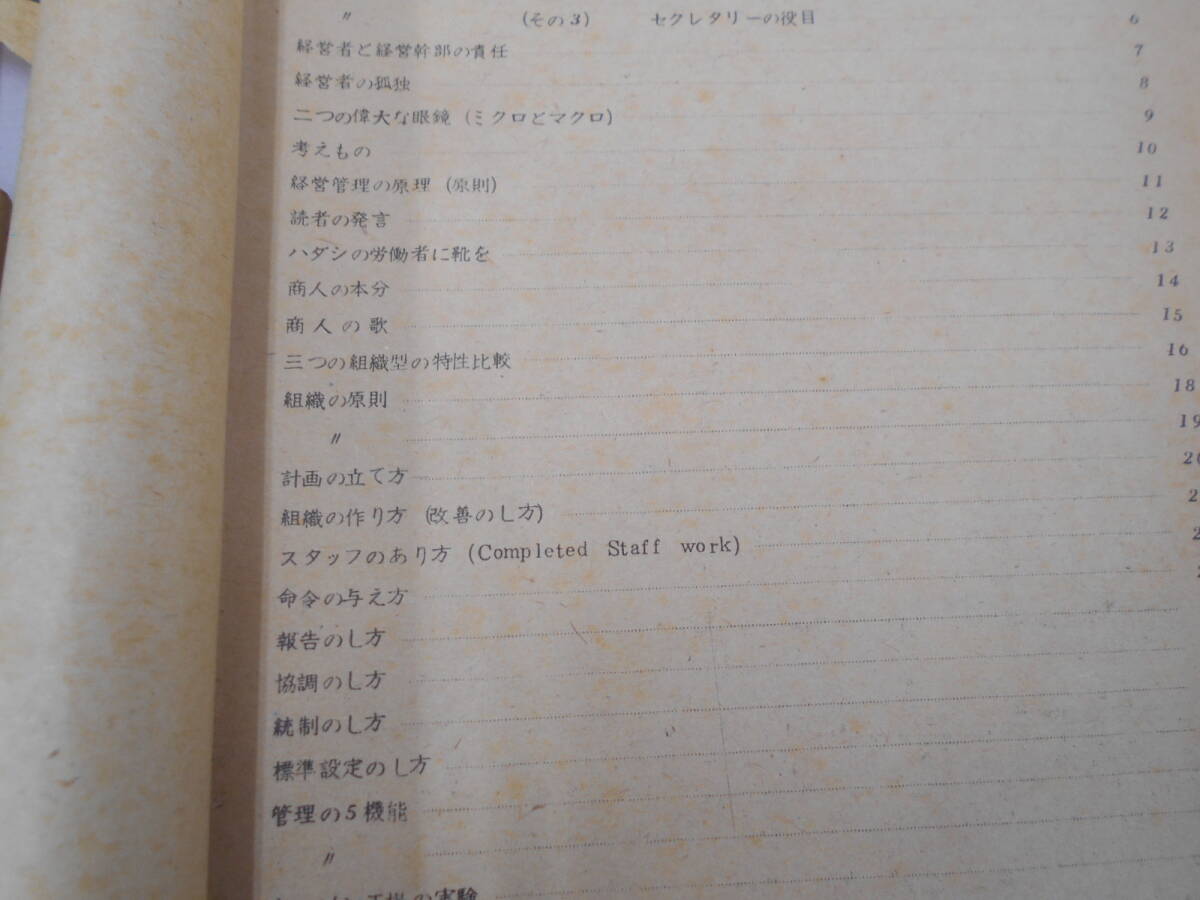 〃 (その3) セクレタリーの役目 6
経営者と経営幹部の責任 7
経営者の孤独 8
二つの偉大な眼鏡 (ミクロとマクロ) 9
考えもの 10
経営管理の原理 (原則) 11
読者の発言 12
ハダシの労働者に靴を 13
商人の本分 14
商人の歌 15
三つの組織型の特性比較 16
組織の原則 18
〃 19
計画の立て方
組織の作り方 (改善のし方)
スタッフのあり方 (Completed Staff work)
命令の与え方
報告のし方
協調のし方
統制のし方
標準設定のし方
管理の5機能
〃
の実験